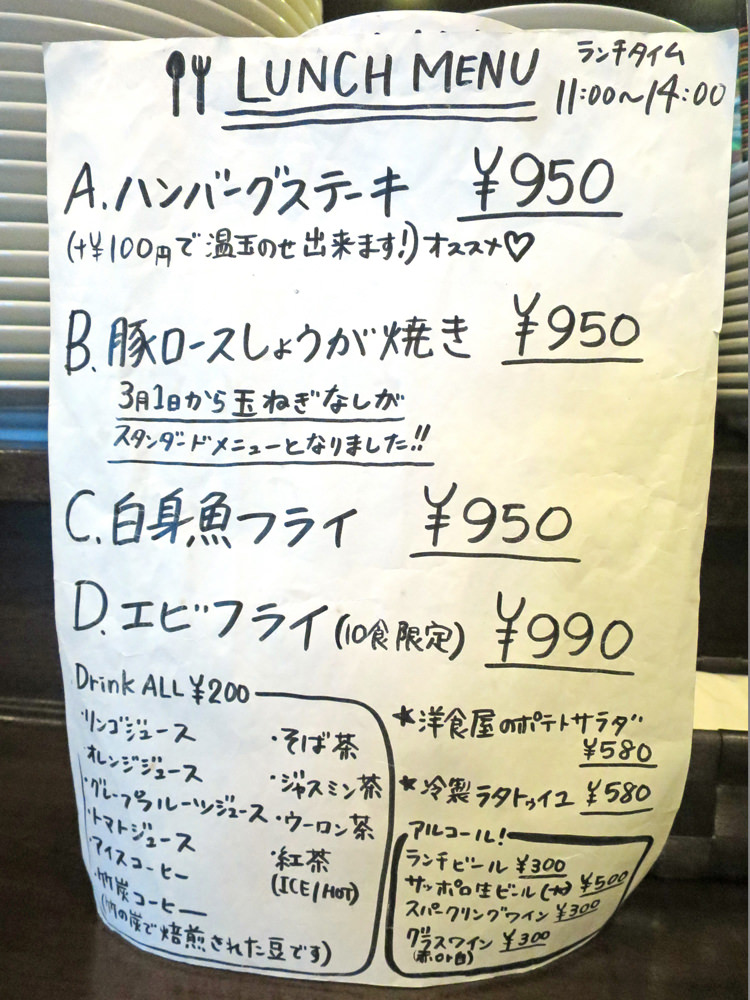 LUNCH MENU
ランチタイム
11:00~14:00
A.ハンバーグステーキ ¥950
(+¥100円で温玉のせ出来ます!)オススメ♡
B.豚ロースしょうが焼き ¥950
3月1日から玉ねぎなしが
スタンダードメニューとなりました!!
C.白身魚フライ ¥950
D.エビフライ(10食限定) ¥990
Drink ALL ¥200
・リンゴジュース
・オレンジジュース
・グレープフルーツジュース
・トマトジュース
・アイスコーヒー
・竹炭コーヒー
(竹の炭で焙煎された豆です)
・そば茶
・ジャスミン茶
・ウーロン茶
・紅茶
(ICE/HOT)
★洋食屋のポテトサラダ
¥580
★冷製ラタトゥイユ ¥580
アルコール!
ランチビール ¥300
サッポロ生ビール ¥500
スパークリングワイン ¥300
グラスワイン ¥300
(赤or白)